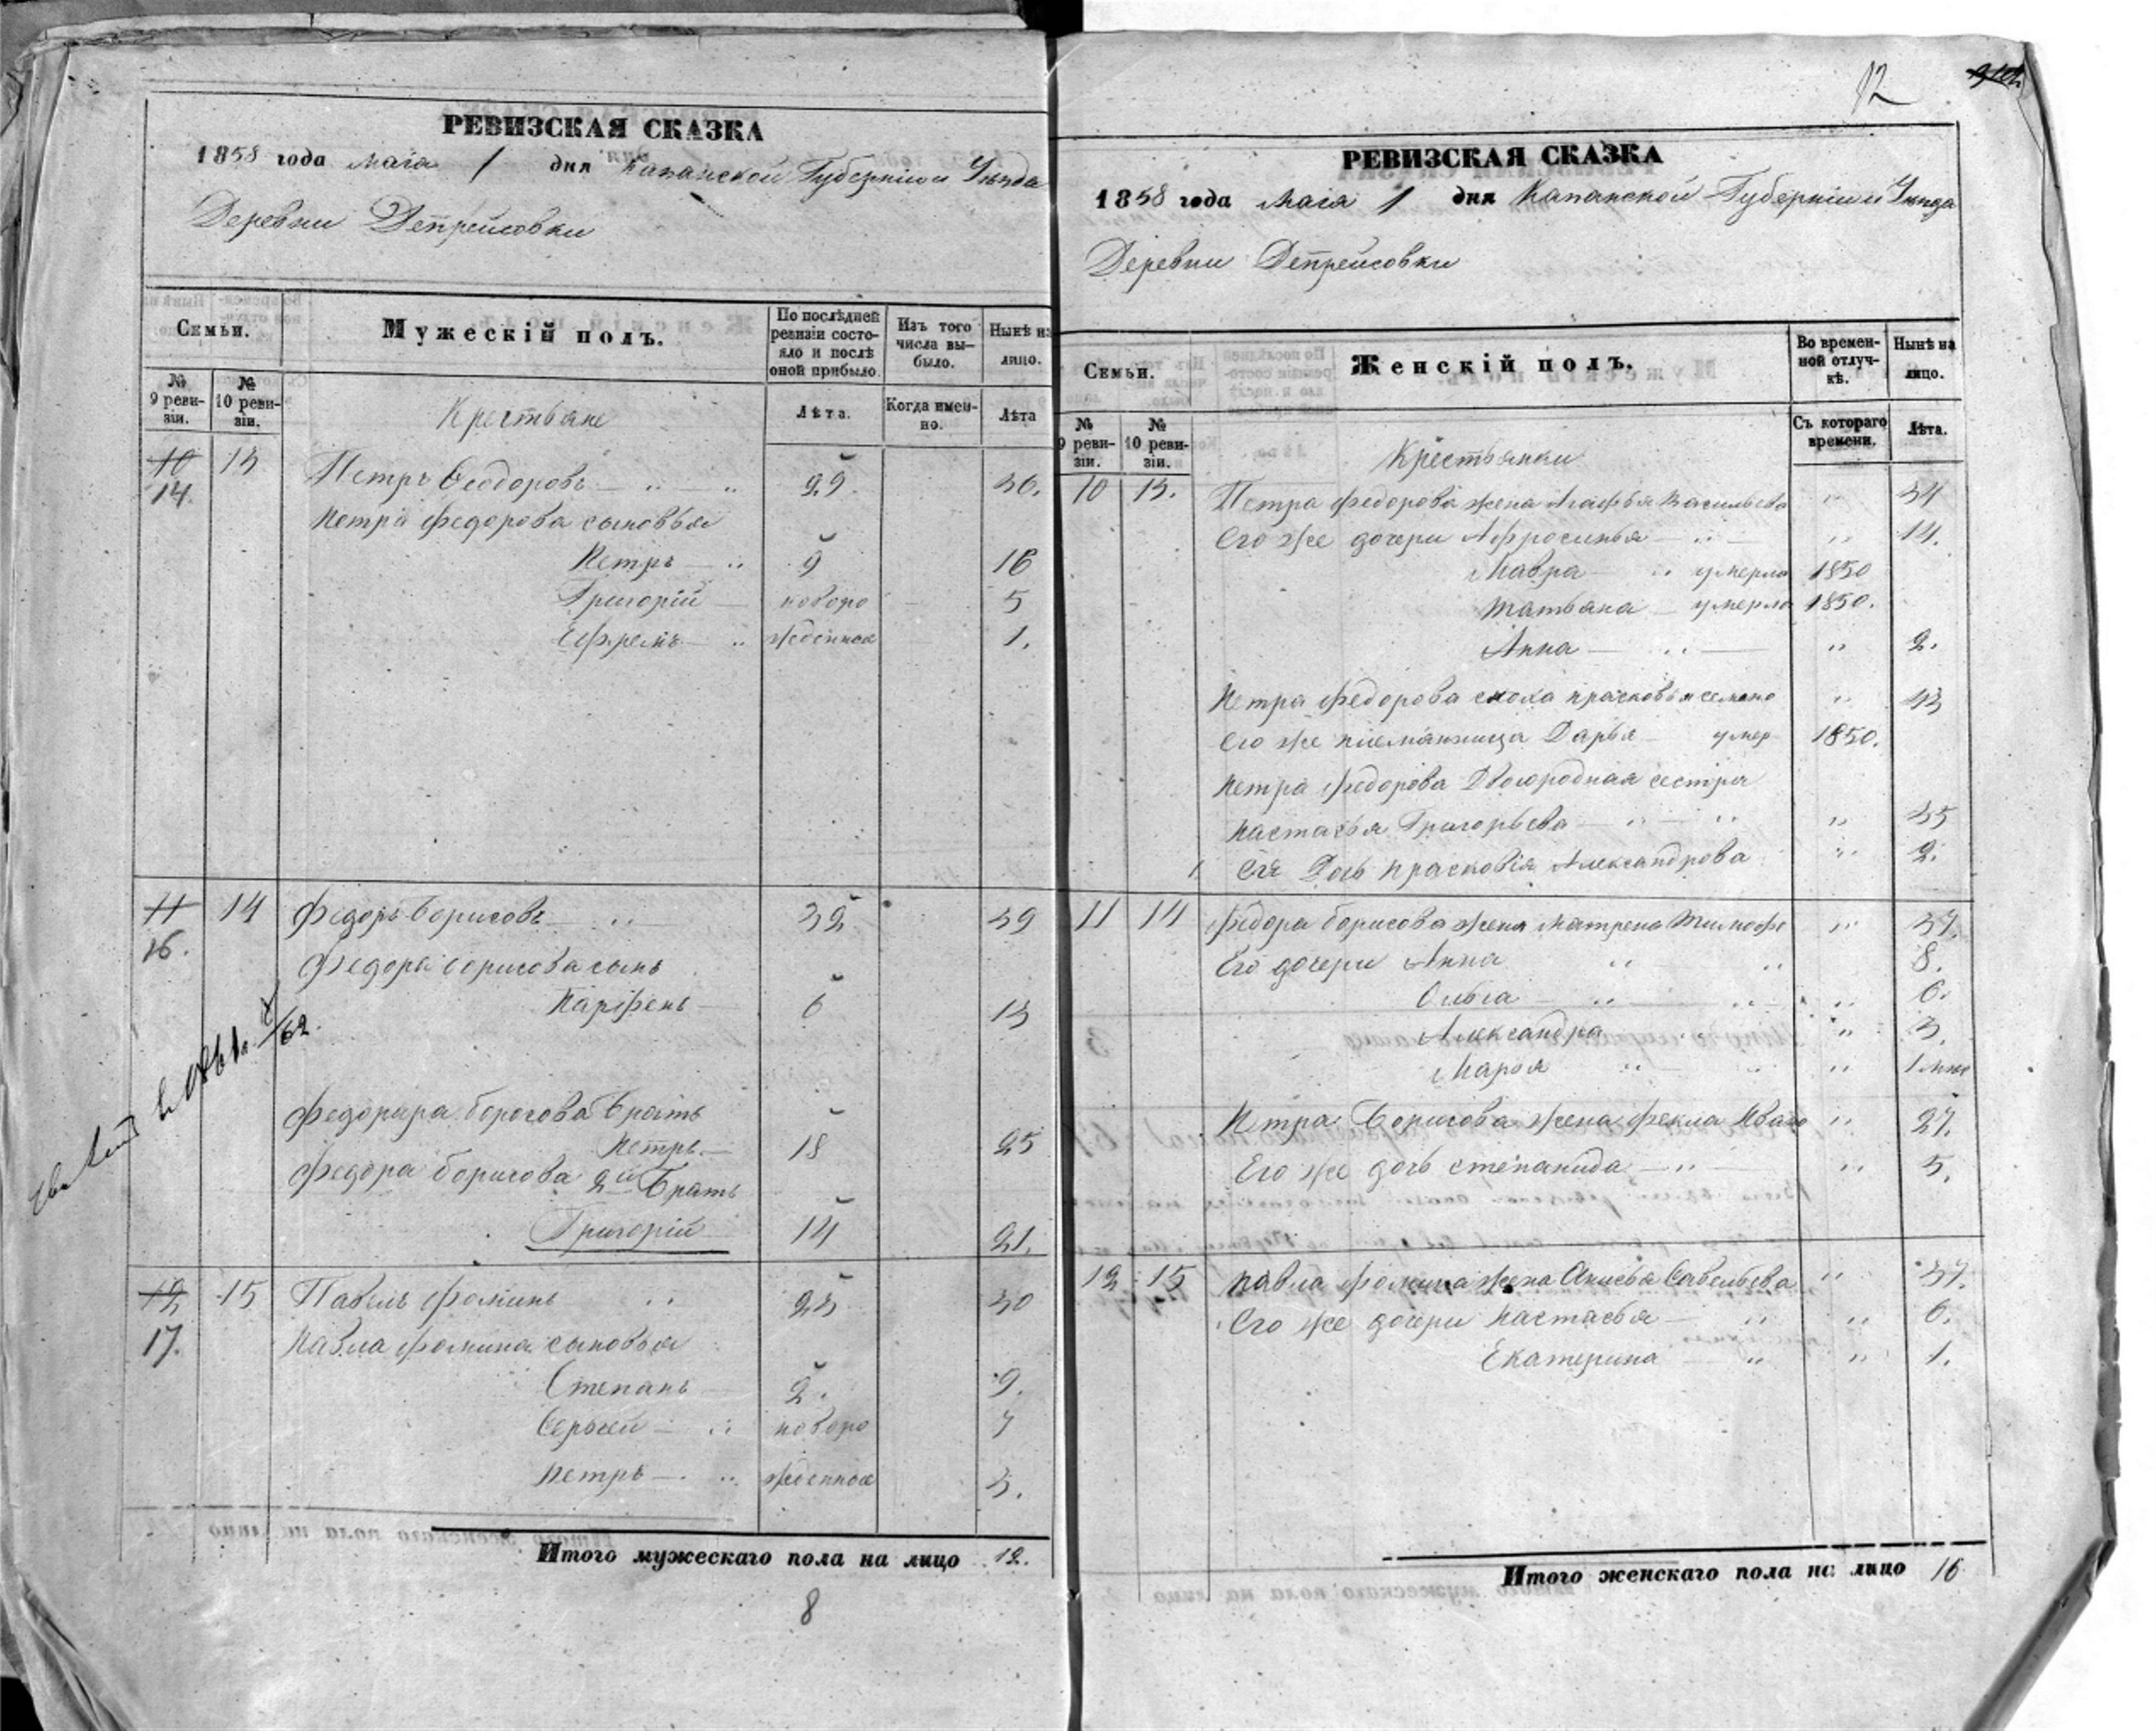 РЕВИЗСКАЯ СКАЗКА
1858 года маія 1 дня Казанской Губерніи и Уѣзда
Деревни Депрейсовки
Семьи.
Мужескій полъ.
По послѣдней ревизіи состояло и послѣ оной прибыло.
Изъ того числа выбыло.
Нынѣ на лицо.
№ 9 ревизіи.
№ 10 ревизіи.
Крестьяне
Лѣта.
Когда именно.
Лѣта
10 13 Петръ Ѳеодоровъ 29 36.
14.
Петра Федорова сыновья
Петръ 9 16
Григорій новоро 5
Ефремъ жденные 1.
11 14 Федоръ Борисовъ 32 39
16.
Федора Борисова сынъ
Парфенъ 6 13
/62.
Братъ
Петръ 18 25
Федора Борисова 2й Братъ
Григорій 14 21.
12 15 Павелъ Фоминъ 23 30
17.
Павла Фомина сыновья
Степанъ 2. 9.
Сергей новоро 7
Петръ жденные 3.
Итого мужескаго пола на лицо 12.
8
12
РЕВИЗСКАЯ СКАЗКА
1858 года Маія 1 дня Казанской Губерніи и Уѣзда
Деревни Депрейсовки
Семьи.
Женскій полъ.
Во временной отлучкѣ.
Нынѣ на лицо.
№ 9 ревизіи.
№ 10 ревизіи.
Съ котораго времени.
Лѣта.
Крестьянки
10 13. Петра Федорова жена Агафья Васильева " 34
Его же дочери Афросинья " 14.
Мавра умерла 1850
Татьяна умерла 1850.
Анна " 2.
Петра Федорова сноха Прасковья Семено " 43
Его же племянница Дарья умер 1850.
Петра Федорова Двоюродная сестра
Настасья Григорьева " 35
Ея Дочь Прасковія Александрова " 2.
11 14 Федора Борисова жена Матрена Тимофе " 37.
Его дочери Анна " 8.
Ольга " 6.
Александра " 3.
Марья " 1 мѣс
Петра Борисова жена Фекла Ивано " 27.
Его же дочь Степанида " 5.
12 15 Павла Фомина жена Анисья Савельева " 37.
Его же дочери Настасья " 6.
Екатерина " 1.
Итого женскаго пола на лицо 16